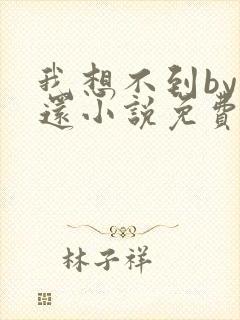 我想不到by
還小說免費
林子祥